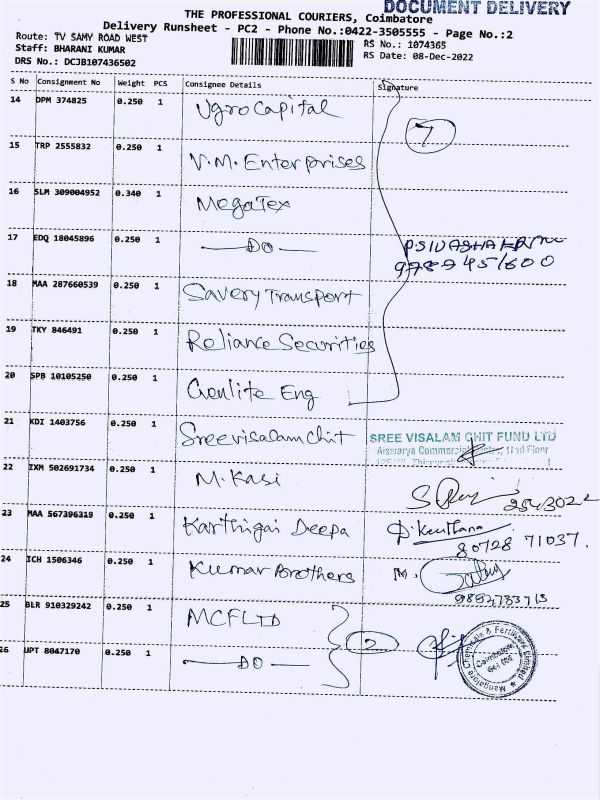 DOCUMENT DELIVERY
THE PROFESSIONAL COURIERS, Coimbatore
Delivery Runsheet - PC2 - Phone No.:0422-3505555 - Page No.:2
Route: TV SAMY ROAD WEST
RS No.: 1074365
Staff: BHARANI KUMAR
RS Date: 08-Dec-2022
DRS No.: DCJB107436502
S No Consignment No Weight PCS Consignee Details Signature
14 DPM 374825 0.250 1 Ugro Capital
7
15 TRP 2555832 0.250 1 V.M. Enterprises
16 SLM 309004952 0.340 1 MegaTex
17 EDQ 18045896 0.250 1 —DO—
18 MAA 287660539 0.250 1 Savery Transport
19 TKY 846491 0.250 1 Reliance Securities
20 SPB 10105250 0.250 1 Genlite Eng
21 KDI 1403756 0.250 1 Sreevisalam Chit
SREE VISALAM CHIT FUND LTD
22 IXM 502691734 0.250 1 M. Kasi
23 MAA 567396319 0.250 1 Karthigai Deepa
80728 71037.
24 ICH 1506346 0.250 1 Kumar Brothers M.
25 BLR 910329242 0.250 1 MCFLTD
2
26 UPT 8047170 0.250 1 —DO—
Mangalore Chemicals & Fertilizers Limited
Coimbatore